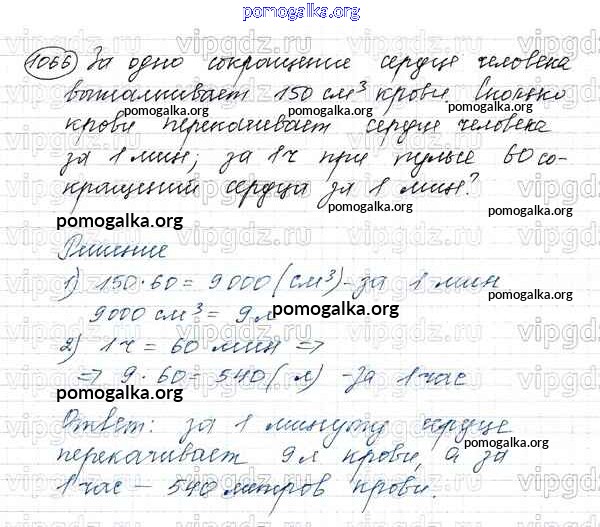 pomogalka.org
1066 За одно сокращение сердце человека
выталкивает 150 см³ крови. Сколько
крови перекачивает сердце человека
за 1 мин; за 1 ч при пульсе 60 со-
кращений сердца за 1 мин?
Решение
1) 150·60 = 9000 (см³) - за 1 мин
9000 см³ = 9 л
2) 1 ч = 60 мин =>
=> 9·60 = 540 (л) - за 1 час
Ответ: за 1 минуту сердце
перекачивает 9 л крови, а за
1 час - 540 литров крови.